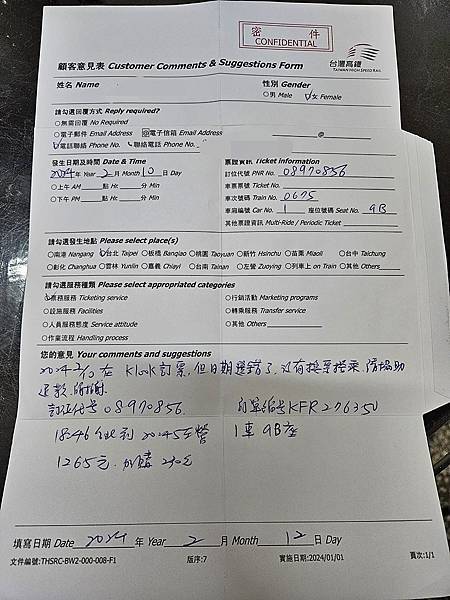 密 件
CONFIDENTIAL
顧客意見表 Customer Comments & Suggestions Form
台灣高鐵
TAIWAN HIGH SPEED RAIL
姓名 Name
性別 Gender
○男 Male ○女 Female
請勾選回覆方式 Reply required?
○無需回覆 No Required
○電子郵件 Email Address @電子信箱 Email Address @
○電話聯絡 Phone No. 聯絡電話 Phone No.
發生日期及時間 Date & Time
2024 年 Year 2 月 Month 10 日 Day
○上午 AM 點 Hr. 分 Min
○下午 PM 點 Hr. 分 Min
票證資訊 Ticket Information
訂位代號 PNR No. 08970856
車票票號 Ticket No.
車次號碼 Train No. 0675
車廂編號 Car No. 1 座位號碼 Seat No. 9B
其他票證資訊 Multi-Ride / Periodic Ticket
請勾選發生地點 Please select place(s)
○南港 Nangang ○台北 Taipei ○板橋 Banqiao ○桃園 Taoyuan ○新竹 Hsinchu ○苗栗 Miaoli ○台中 Taichung
○彰化 Changhua ○雲林 Yunlin ○嘉義 Chiayi ○台南 Tainan ○左營 Zuoying ○列車上 on Train ○其他 Others
請勾選服務種類 Please select appropriated categories
○票務服務 Ticketing service ○行銷活動 Marketing programs
○設施服務 Facilities ○轉乘服務 Transfer service
○人員服務態度 Service attitude ○其他 Others
○作業流程 Handling process
您的意見 Your comments and suggestions
2024 2/10 在 Klook 訂票,但日期選錯了,沒有換票搭乘,請協助
退款,謝謝
訂位代号 08970856 訂單編號 KFR276350
18:46 台北到 2045 左營 1車 9B座
1265元 加購 230元
填寫日期 Date 2024 年 Year 2 月 Month 12 日 Day
文件編號:THSRC-BW2-000-008-F1 版序:7 實施日期:2024/01/01 頁次:1/1